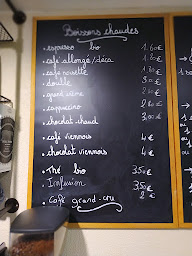 Boissons chaudes
• espresso bio 1.60€
• café allongé/déca 1.80€
• café noisette 1.80
• double
• grand crème
• cappuccino
• chocolat chaud 3,00€
• café viennois 4€
• chocolat viennois 4€
• Thé bio 3,50€
Infusion 3,50€
• Café grand-cru 2€